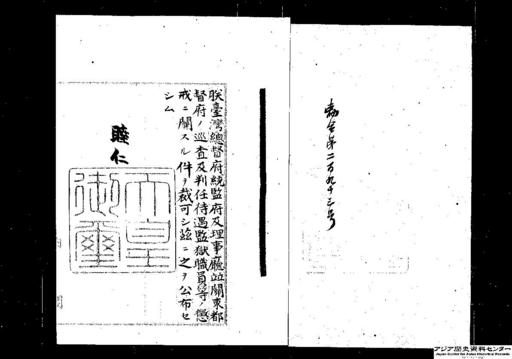 勅令第二百九十三号
朕臺灣總督府統監府及理事廳竝關東都
督府ノ巡査及判任待遇監獄職員等ノ懲
戒ニ關スル件ヲ裁可シ茲ニ之ヲ公布セ
シム
睦仁
天皇
御璽
アジア歴史資料センター
Japan Center for Asian Historical Records